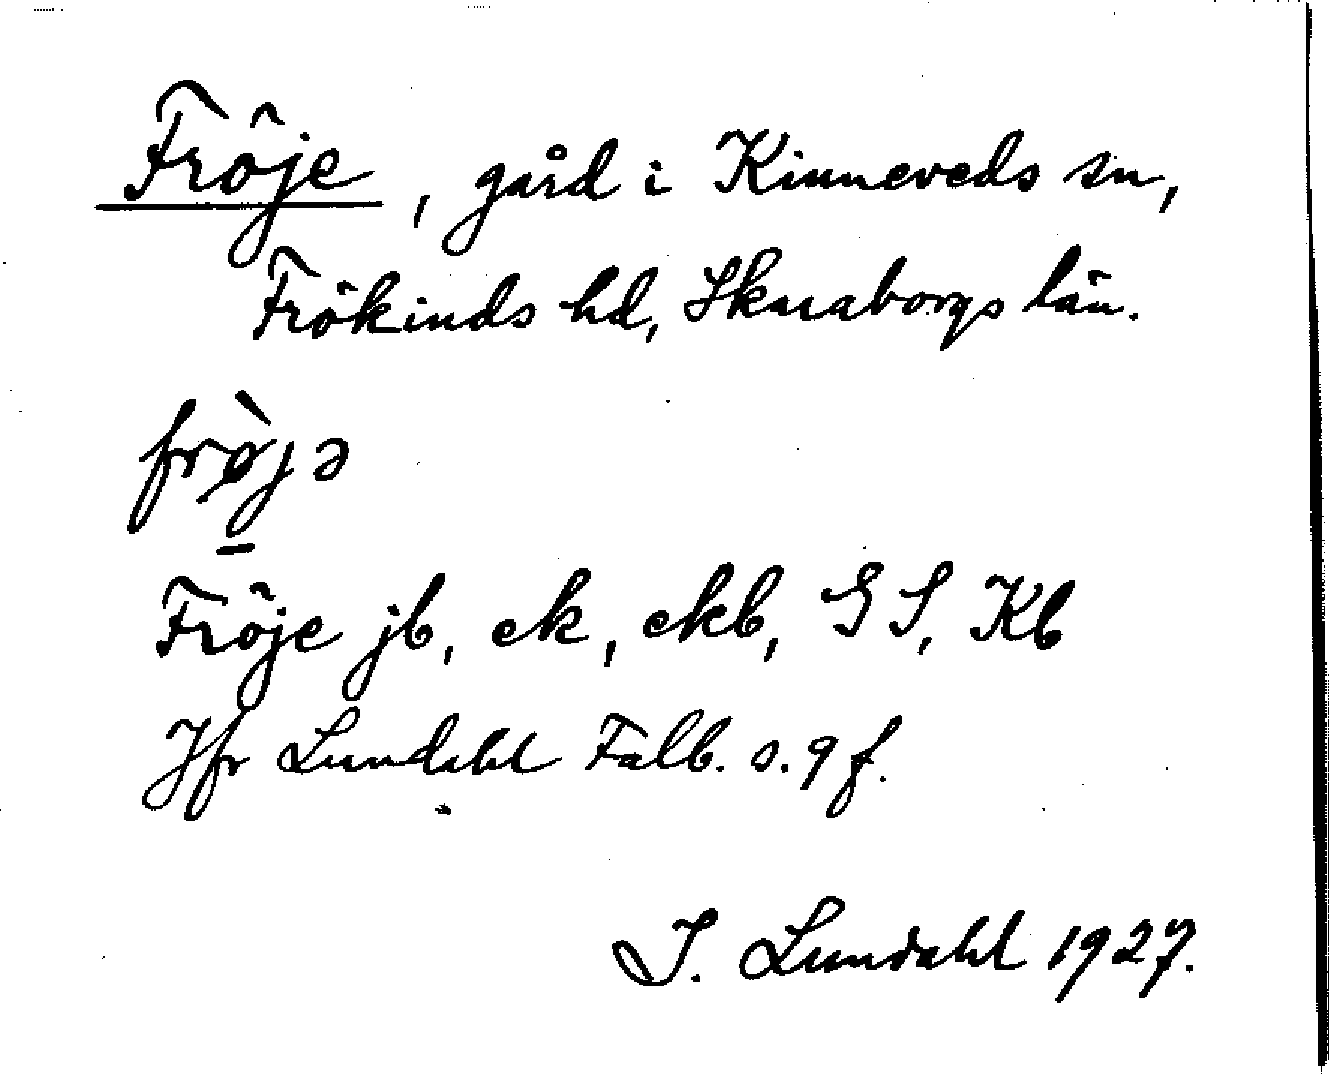 Fröje, gård i Kinneveds sn,
Frökinds hd, Skaraborgs län.
frø̀jə
Fröje jb, ek, ekb, GS, Kb
Jfr Lundahl Falb. s. 9 f.
I. Lundahl 1927.